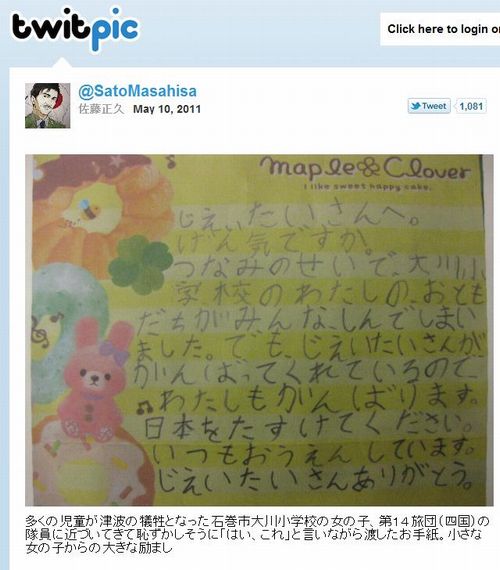 twitpic
Click here to login or
@SatoMasahisa
佐藤正久 May 10, 2011
Tweet 1,081
maple Clover
I like sweet happy cake.
じえいたいさんへ。
げん気ですか。
つなみのせいで、大川小
学校のわたしの、おとも
だちがみんな、しんでしまい
ました。でも、じえいたいさんが
がんばってくれているので、
わたしもがんばります。
日本をたすけてください。
いつもおうえんしています。
じえいたいさんありがとう。
多くの児童が津波の犠牲となった石巻市大川小学校の女の子、第14旅団(四国)の
隊員に近づいてきて恥ずかしそうに「はい、これ」と言いながら渡したお手紙。小さな
女の子からの大きな励まし